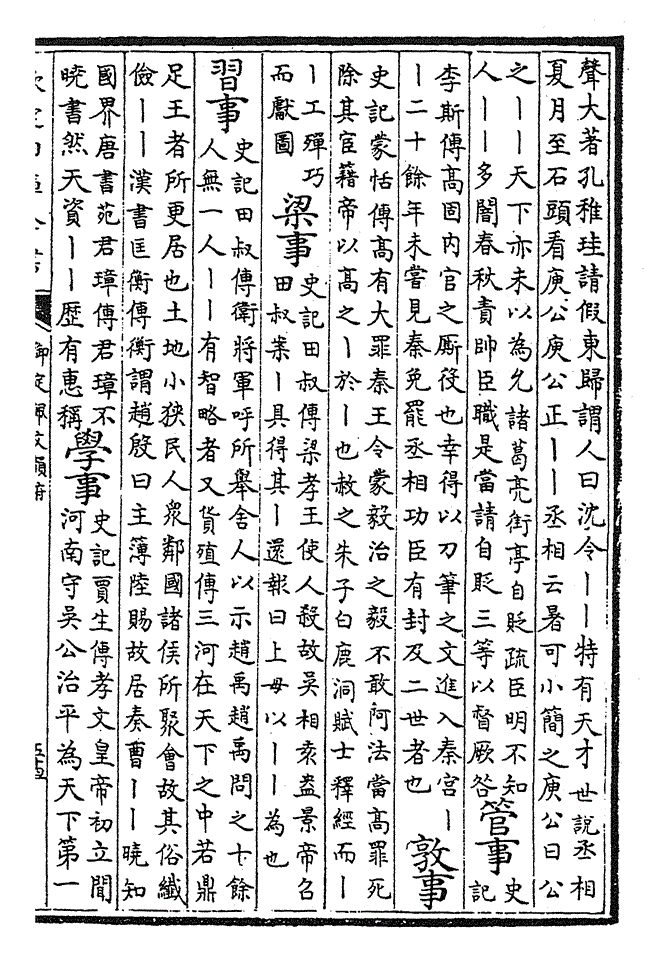 聲大著孔稚珪請假東歸謂人曰沈令——特有天才世說丞相
夏月至石頭看庾公庾公正——丞相云暑可小簡之庾公曰公
之——天下亦未以為允諸葛亮街亭自貶疏臣明不知
人——多闇春秋責帥臣職是當請自貶三等以督厥咎
管事
史
記
李斯傳高固内官之厮役也幸得以刀筆之文進入秦宮—
—二十餘年未嘗見秦免罷丞相功臣有封及二世者也
敦事
史記蒙恬傳高有大罪秦王令蒙毅治之毅不敢阿法當高罪死
除其宦籍帝以高之—於—也赦之朱子白鹿洞賦士釋經而—
—工殫巧
而獻圖
梁事
史記田叔傳梁孝王使人殺故吳相袁盎景帝召
田叔案—具得其—還報曰上毋以——為也
習事
史記田叔傳衛將軍呼所舉舍人以示趙禹趙禹問之十餘
人無一人——有智略者又貨殖傳三河在天下之中若鼎
足王者所更居也土地小狹民人衆鄰國諸侯所聚會故其俗纖
儉——漢書匡衡傳衡謂趙殷曰主簿陸賜故居奏曹——曉知
國界唐書苑君璋傳君璋不
曉書然天資——歷有惠稱
學事
史記賈生傳孝文皇帝初立聞
河南守吳公治平為天下第一
欽定四庫全書
御定佩文韻府